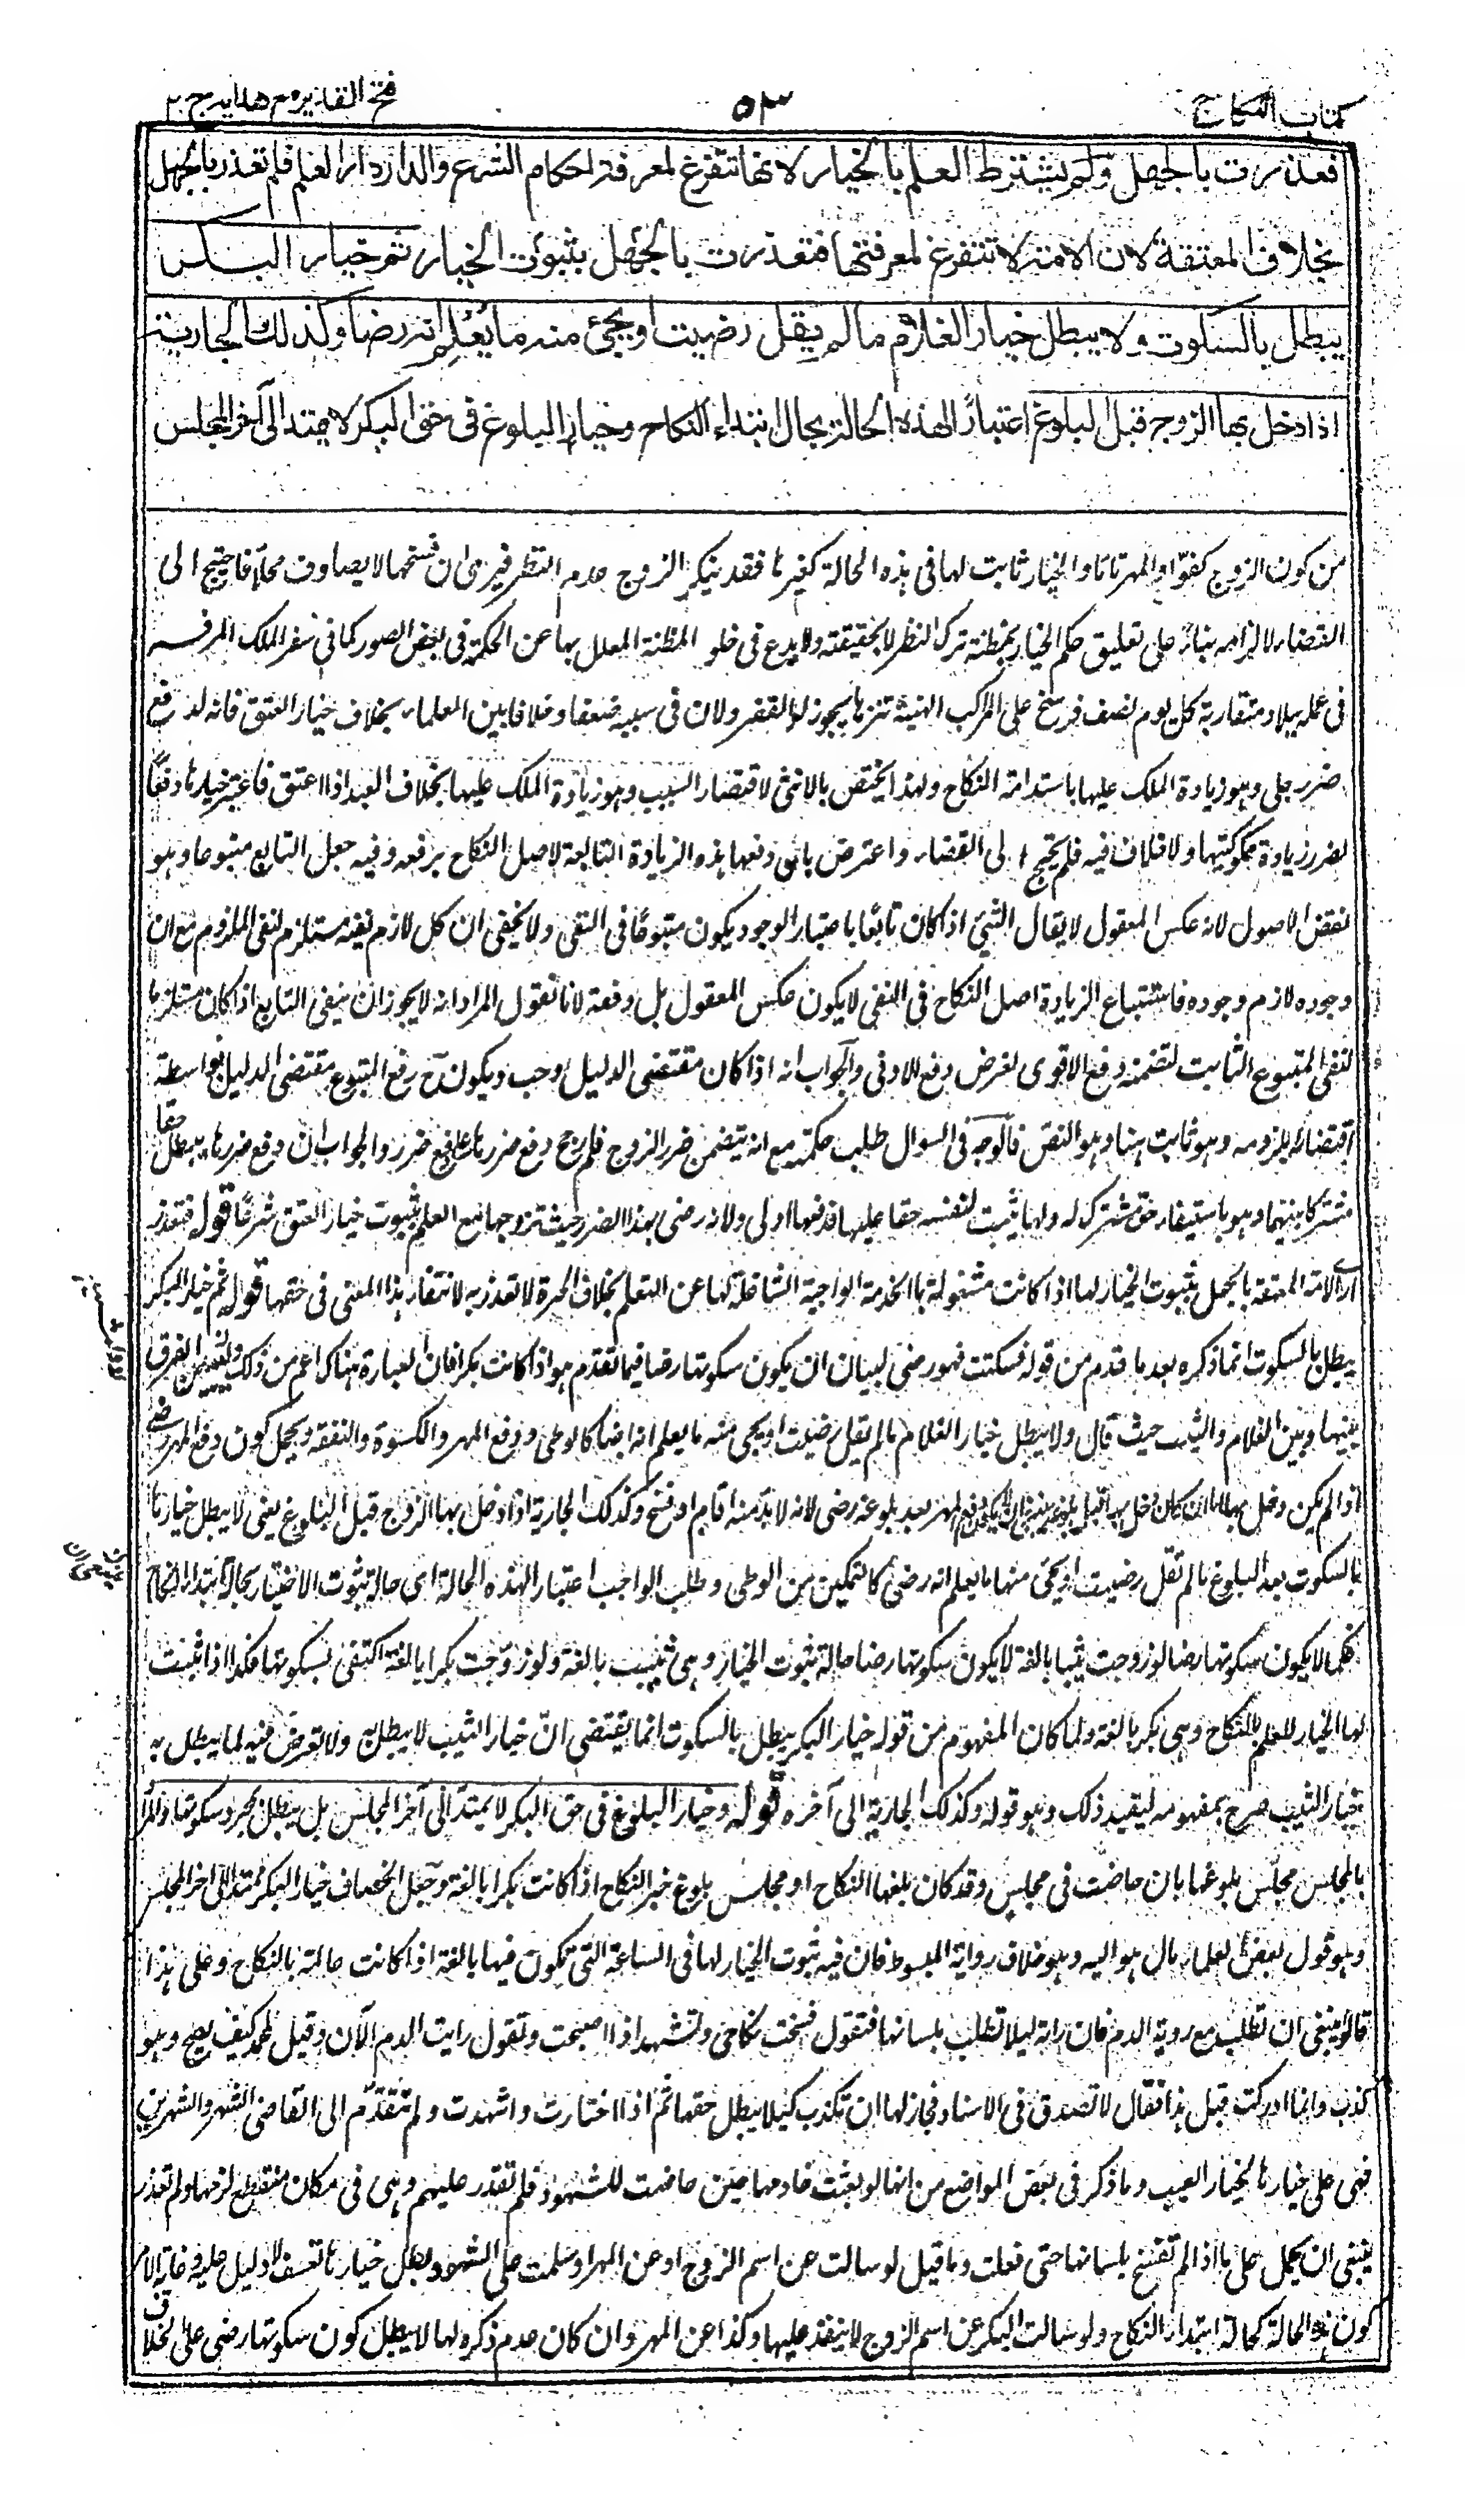 كتاب النكاح
٥٣
فتح القدير مع هدايه ج ٢
فعذرت بالجهل ولم يشترط العلم بالخيار لانها تتفرغ لمعرفة احكام الشرع والدار دار العلم فلم تعذر بالجهل
بخلاف المعتقة لان الامة لا تتفرغ لمعرفتها فتعذرت بالجهل بثبوت الخيار ثم خيار البكر
يبطل بالسكوت ولا يبطل خيار الغلام ما لم يقل رضيت او يجئ منه ما يعلم انه رضا وكذلك الجارية
اذا دخل بها الزوج قبل البلوغ اعتبارًا لهذه الحالة بحال ابتداء النكاح وخيار البلوغ في حق البكر لا يمتد الى آخر المجلس
من كون الزوج كفوًّا والمهر تاما والخيار ثابت لها في هذه الحالة كغيرها فقد ينكر الزوج عدم النظر فيرى ان فسخها لا يصادف محلا فاحتيج الى
القضاء لالزامه بناءً على تعليق حكم الخيار بمظنة ترك النظر لا بحقيقته ولا بدع في خلو المظنة المعلل بها عن الحكمة في بعض الصور كما في سفر الملك المرفه
في عمله ببلاد متقاربة كل يوم نصف فرسخ على المراكب الهنيئة تنزها يجوز له القصر ولان في سببه ضعفا وخلافا بين العلماء بخلاف خيار العتق فانه لدفع
ضرر جلي وهو زيادة الملك عليها باستدامة النكاح ولهذا يختص بالانثى لاقتصار السبب وهو زيادة الملك عليها بخلاف العبد اذا اعتق فاعتبر خيارها دفعًا
لضرر زيادة مملوكيتها ولا خلاف فيه فلم يحتج الى القضاء واعترض بان دفعها هذه الزيادة التابعة لاصل النكاح برفعه وفيه جعل التابع متبوعا وهو
نقض الاصول لانه عكس المعقول لا يقال الشئ اذا كان تابعًا باعتبار الوجود يكون متبوعًا في النفي ولا يخفى ان كل لازم نفيه مستلزم لنفي الملزوم مع ان
وجوده لازم وجوده فاستتباع الزيادة اصل النكاح في النفي لا يكون عكس المعقول بل وفقه لانا نقول المراد انه لا يجوز ان ينفي التابع اذا كان مستلزما
لنفي المتبوع الثابت لتضمنه دفع الاقوى لغرض دفع الادنى والجواب انه اذا كان مقتضى الدليل وجب ويكون ح رفع المتبوع مقتضى الدليل بواسطة
اقتضائه ملزومه وهو ثابت هنا وهو النص فالوجه في السوال طلب حكمته مع انه يتضمن ضرر الزوج فلم رجح دفع ضررها على دفع ضرره والجواب ان دفع ضررها يبطل حقا
مشتركا بينهما وهو باستيفاء حق مشترك له ولها يثبت لنفسه حقا عليها فدفعها اولى ولانه رضي بهذا الضرر حيث تزوجها مع العلم بثبوت خيار العتق شرعًا قوله فتعذر
اى الامة المعتقة بالجهل بثبوت الخيار لها اذا كانت مشغولة بالخدمة الواجبة الشاغلة لها عن التعلم بخلاف الحرة لا تعذر به لانتفاء هذا المعنى في حقها قوله ثم خيار البكر
يبطل بالسكوت انما ذكره بعد ما قدم من قوله فسكتت فهو رضى لبيان ان يكون سكوتها رضا فيما تقدم هو اذا كانت بكرا فان العبارة هناك اعم من ذلك وليبين الفرق
بينها وبين الغلام والثيب حيث قال ولا يبطل خيار الغلام ما لم يقل رضيت او يجئ منه ما يعلم انه رضا كالوطى ودفع المهر والكسوة والنفقة ويحمل كون دفع المهر رضى
اذا لم يكن دخل بها اما ان كان دخل بها قبل بلوغه ينبغي ان لا يكون دفع المهر بعد بلوغه رضى لانه لا بد منه اقام او فسخ وكذلك الجارية اذا دخل بها الزوج قبل البلوغ يعني لا يبطل خيارها
بالسكوت بعد البلوغ ما لم تقل رضيت او يجئ منها ما يعلم انه رضى كالتمكين من الوطى وطلب الواجب اعتبارا لهذه الحالة اى حالة ثبوت الاختيار بحالة ابتداء النكاح
فكما لا يكون سكوتها رضا لو زوجت ثيبا بالغة لا يكون سكوتها رضا حالة ثبوت الخيار وهي ثيب بالغة ولو زوجت بكرا بالغة اكتفى بسكوتها فكذا اذا ثبت
لها الخيار للعلم بالنكاح وهي بكر بالغة ولما كان المفهوم من قوله خيار البكر يبطل بالسكوت انما يقتضي ان خيار الثيب لا يبطل به ولا تعرض فيه لما يبطل به
خيار الثيب صرح بمفهومه ليفيد ذلك وهو قوله وكذلك الجارية الى آخره قوله وخيار البلوغ في حق البكر لا يمتد الى آخر المجلس بل يبطل بمجرد سكوتها والمراد
بالمجلس مجلس بلوغها بان حاضت في مجلس وقد كان بلغها النكاح او مجلس بلوغ خبر النكاح اذا كانت بكرا بالغة وجعل الخصاف خيار البكر ممتدا الى اخر المجلس
وهو قول بعض العلماء مال هو اليه وهو خلاف رواية المبسوط فان فيه ثبوت الخيار لها في الساعة التي تكون فيها بالغة اذا كانت عالمة بالنكاح وعلى هذا
قالوا ينبغي ان تطلب مع روية الدم فان رأته ليلا تطلب بلسانها فتقول فسخت نكاحي وتشهد اذا اصبحت وتقول رايت الدم الآن وقيل لمحمد كيف يصح وهو
كذب وانما ادركت قبل هذا فقال لا تصدق في الاسناد فجاز لها ان تكذب كيلا يبطل حقها ثم اذا اختارت واشهدت ولم تتقدم الى القاضى الشهر والشهرين
فهي على خيارها كخيار العيب وما ذكر في بعض المواضع من انها لو بعثت خادمها حين حاضت للشهود فلم تقدر عليهم وهي في مكان منقطع لزمها ولم تعذر
ينبغي ان يحمل على ما اذا لم تفسخ بلسانها حتى فعلت وما قيل لو سالت عن اسم الزوج او عن المهر او سلمت على الشهود بطل خيارها تعسف لا دليل عليه وغاية الامر
كون هذه الحالة كحالة ابتداء النكاح ولو سالت البكر عن اسم الزوج لا ينفذ عليها وكذا عن المهر وان كان عدم ذكره لها لا يبطل كون سكوتها رضى على الخلاف